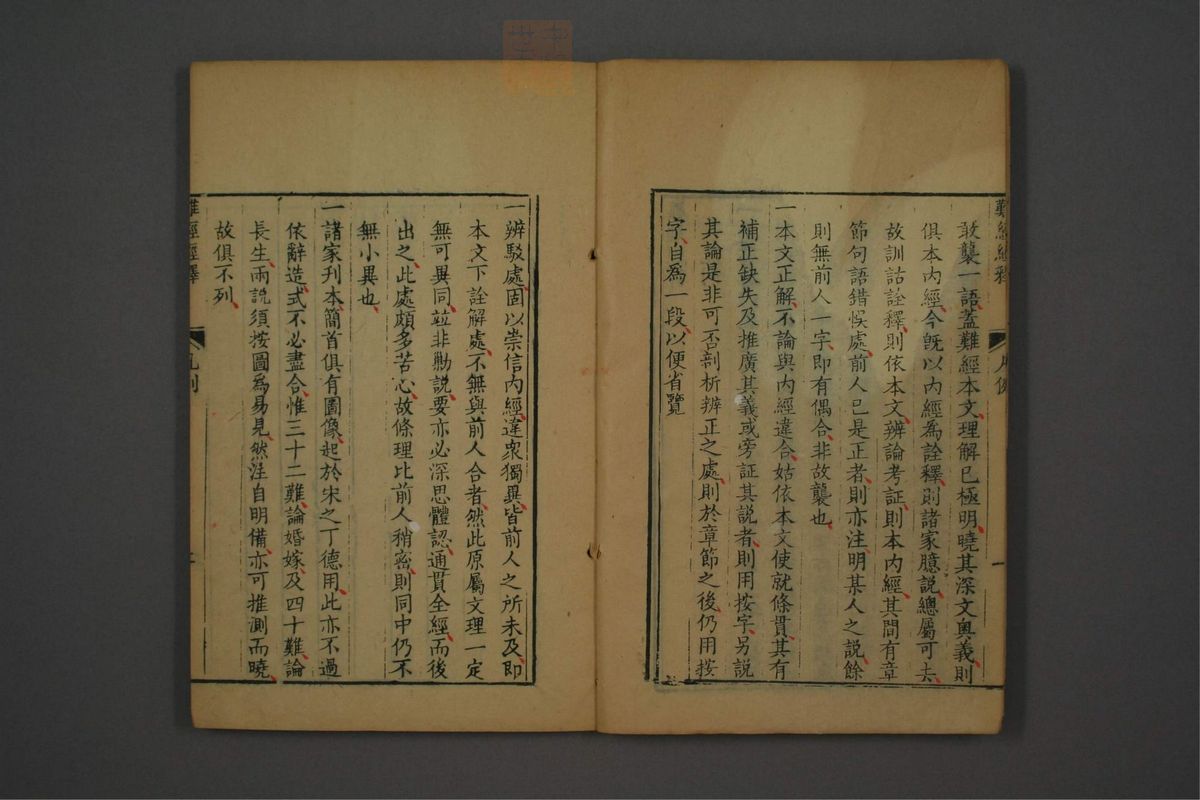 敢襲一語蓋難經本文理解已極明曉其深文奧義則
俱本內經今旣以內經為詮釋則諸家臆說總屬可去
故訓詁詮釋則依本文辨論考証則本內經其間有章
節句語錯悞處前人已是正者則亦注明某人之說餘
則無前人一字即有偶合非故襲也
一本文正解不論與內經違合姑依本文使就條貫其有
補正缺失及推廣其義或旁証其說者則用按字另說
其論是非可否剖析辨正之處則於章節之後仍用按
字自為一段以便省覽
一辨駁處固以崇信內經違衆獨異皆前人之所未及即
本文下詮解處不無與前人合者然此原屬文理一定
無可異同竝非勦說要亦必深思體認通貫全經而後
出之此處頗多苦心故條理比前人稍密則同中仍不
無小異也
一諸家刋本簡首俱有圖像起於宋之丁德用此亦不過
依辭造式不必盡合惟三十二難論婚嫁及四十難論
長生兩說須按圖為易見然注自明備亦可推測而曉
故俱不列
難經經釋
凡例